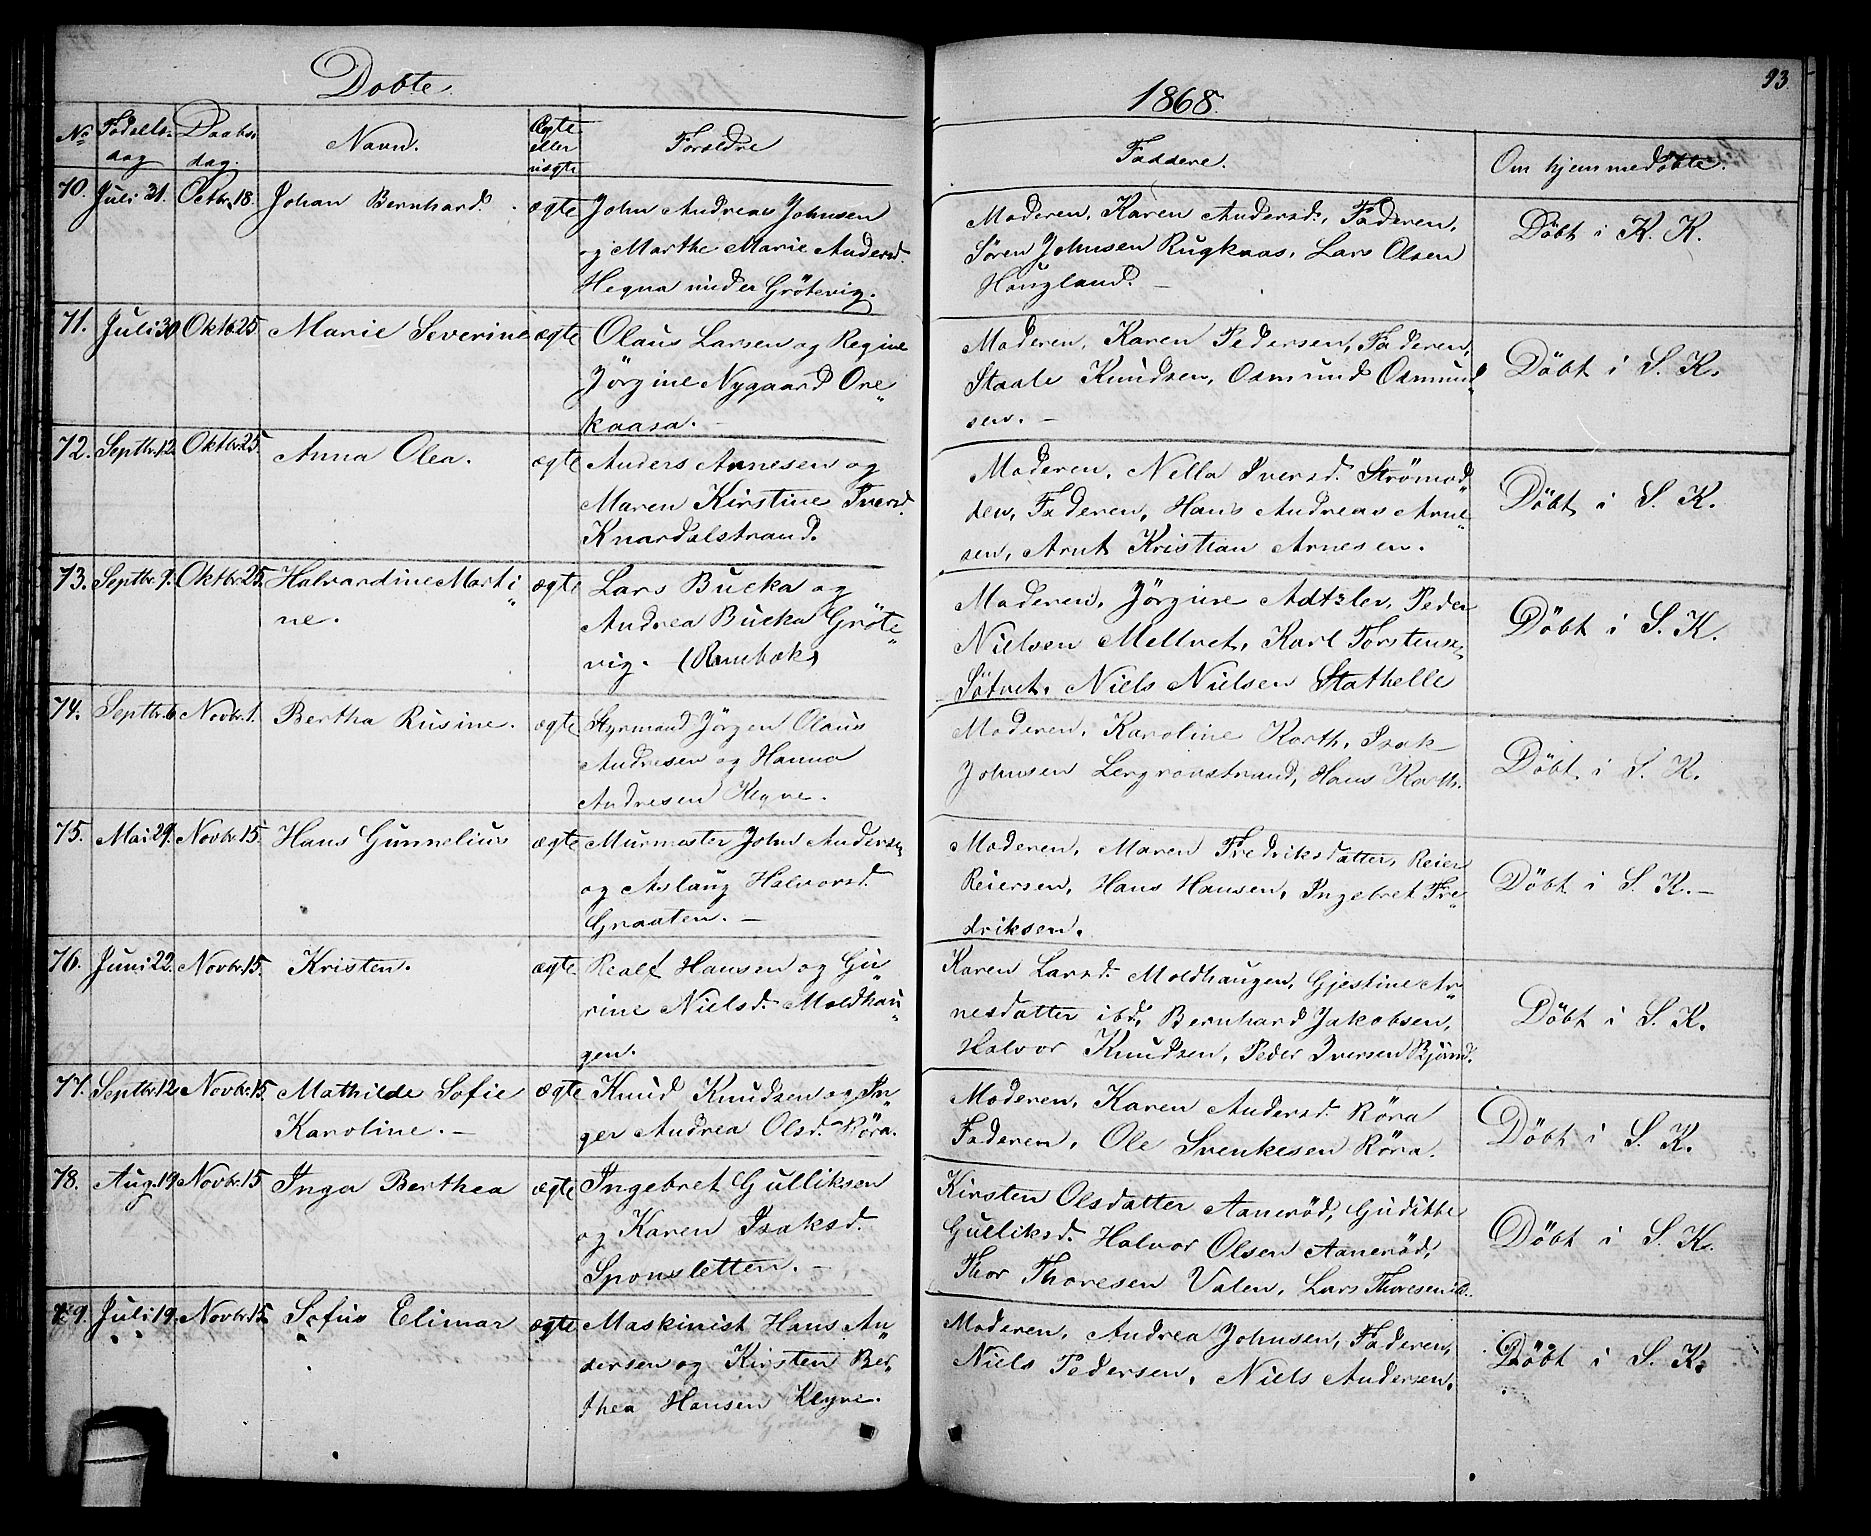 Døbte.
1868.
93
No Fødsels-dag Daabs-dag. Navn. Ægte eller uægte Forældre Faddere. Om hjemmedøbte.
70. Juli 31. Octbr. 18. Johan Bernhard. ægte John Andreas Johnsen
og Marthe Marie Andersd.
Hegna under Grötevig.
Moderen, Karen Andersd., Faderen,
Sören Johnsen Rugkaas, Lars Olsen
Haugland. –
Döbt i K. K.
71. Juli 30. Oktb. 25. Marie Severine ægte Olaus Larsen og Regine
Jörgine Nygaard Ore„
kaasa. –
Moderen, Karen Pedersen, Faderen,
Staale Knudsen, Osmund Osmund„
sen. –
Döbt i S. K.
72. Septbr. 12. Oktbr. 25. Anna Olea. ægte Anders Arnesen og
Maren Kirstine Iversd.
Knardalstrand.
Moderen, Nella Iversd. Strömod„
den, Faderen, Hans Andreas Arne„
sen, Arnt Kristian Arnesen.
Döbt i S. K.
73. Septbr. 9. Oktbr. 25. Halvardine Marti„
ne.
ægte Lars Bucka og
Andrea Bucka Gröte„
vig. (Rambæk)
Moderen, Jörgine Peder
Nielsen Meltvet, Karl Torstensen
Sötvet, Niels Nielsen Stathelle
Döbt i S. K.
74. Septbr. 6. Novbr. 1. Bertha Rusine. ægte Styrmand Jörgen Olaus
Andresen og Hanna
Andresen Klyve.
Moderen, Karoline Korth, Isak
Johnsen Lergravstrand, Hans Korth.
Döbt i S. K.
75. Mai 29. Novbr. 15. Hans Gunnelius ægte Murmester John Andersen
og Aslaug Halvorsd.
Graaten. –
Moderen, Maren Fredriksdatter, Reier
Reiersen, Hans Hansen, Ingebret Fre„
driksen.
Döbt i S. K. –
76. Juni 22. Novbr. 15. Kristen. ægte Realf Hansen og Gu„
rine Nielsd. Moldhau„
gen.
Karen Larsd. Moldhaugen, Gjestine Ar„
nesdatter ibd, Bernhard Jakobsen,
Halvor Knudsen, Peder Iversen
Döbt i S. K.
77. Septbr. 12 Novbr. 15. Mathilde Sofie
Karoline. –
ægte Knud Knudsen og In„
ger Andrea Olsd. Röra.
Moderen, Karen Andersd. Röra
Faderen, Ole Svenkesen Röra.
Döbt i S. K.
78. Aug. 19. Novbr. 15 Inga Berthea ægte Ingebret Gulliksen
og Karen Isaksd.
Sponsletten. –
Kirsten Olsdatter Aaneröd, Guditbe
Gulliksd. Halvor Olsen Aaneröd,
Thor Thoresen Valen, Lars Thoresen ib.
Döbt i S. K.
79. Juli 19. Novbr. 15 Sofus Elimar ægte Maskinist Hans An„
dersen og Kirsten Ber„
thea Hansen Klyve.
Moderen, Andrea Johnsen, Faderen,
Niels Pedersen, Niels Andersen.
Döbt i S. K.